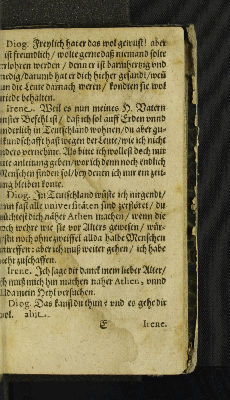 Diog. Freylich hat er das wol gewust/ aber
ist freundlich/ wolte gerne daß niemand solte
erlohren werden/ denn er ist barmhertzig vnd
nedig/ darumb hat er dich hieher gesandt/ weñ
un die Leute darnach weren/ kondten sie wol
friede behalten.
Irene. Weil es nun meines H. Vatern
ernster Befehl ist/ daß ich sol auff Erden vnnd
underlich in Teutschland wohnen/ du aber gu-
kundschafft hast wegen der Leute/ wie ich nicht
anders vernehme. Als bitte ich wollest doch mir
ute anleitung geben/ wor ich denn noch endlich
Menschen finden sol/ bey denen ich nur ein zeit-
ng bleiben konte.
Diog. In Teutschland wüste ich nirgendt/
nn fast alle universiteten sind zerstöret/ du
üchtest dich näher Athen machen/ wenn die
och wehre wie sie vor Alters gewesen/ wür-
stu noch ohne zweiffel allda halbe Menschen
antreffen: aber ich muß weiter gehen/ ich habe
icht zuschaffen.
Irene. Ich sage dir danck mein lieber Alter/
ch muß mich hin machen naher Athen, vnnd
llda mein Heyl versuchen.
Diog. Das kanstu thun: vnd es gehe dir
wol. abit.
E Irene.